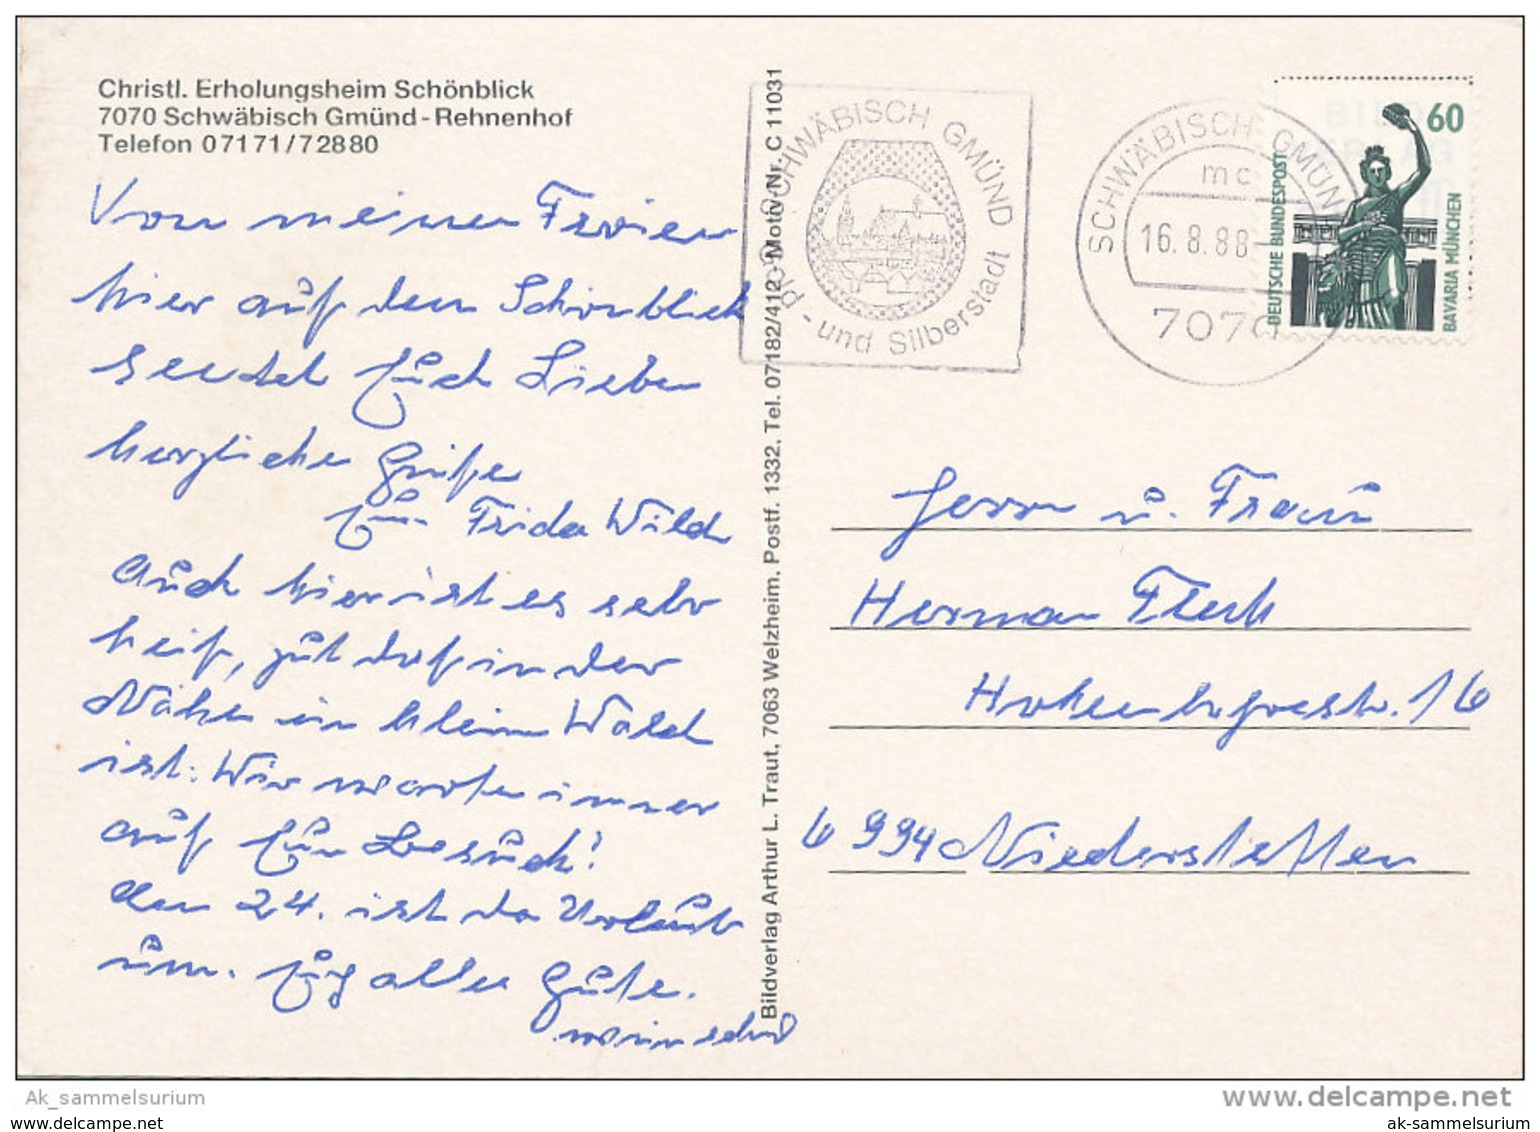 Christl. Erholungsheim Schönblick
7070 Schwäbisch Gmünd-Rehnenhof
Telefon 07171/72880
Von meinen Ferien
hier auf dem Schönblick
sendet Euch Lieben
herzliche Grüße
Eure Frida Wild
Auch hier ist es sehr
heiß, gut daß in der
Nähe ein klein Wald
ist. Wir warten immer
auf Eurn Besuch!
den 24. ist der Urlaub
um. Euch alles Gute.
wünschd
Bildverlag Arthur L. Traut, 7063 Welzheim, Postf. 1332, Tel. 07182/412, Motiv-Nr. C 11031
SCHWÄBISCH GMÜND
Gold - und Silberstadt
SCHWÄBISCH GMÜN
mc
16.8.88
7070
60
DEUTSCHE BUNDESPOST
BAVARIA MÜNCHEN
Herrn u. Frau
Herman Fleck
16
6994 Niederstetten
Ak_sammelsurium
www.delcampe.net
www.ak-sammelsurium.de
ak-sammelsurium